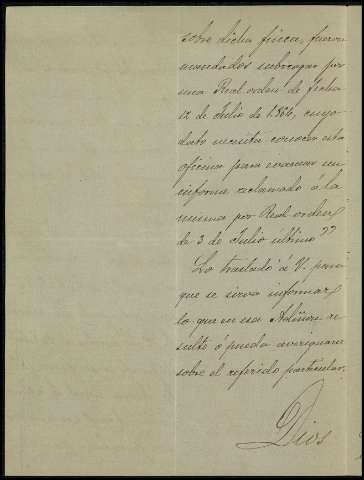 sobre dicha finca, fueron
mandados subrogar por
una Real orden de fecha
12 de Julio de 1864, cuyo
dato necesita conocer esta
oficina para evacuar un
informe reclamado á la
misma por Real orden
de 3 de Julio último"
Lo traslado á V. para
que se sirva informar
lo que en esa Admon re
sulte ó pueda averiguarse
sobre el referido particular.
Dios